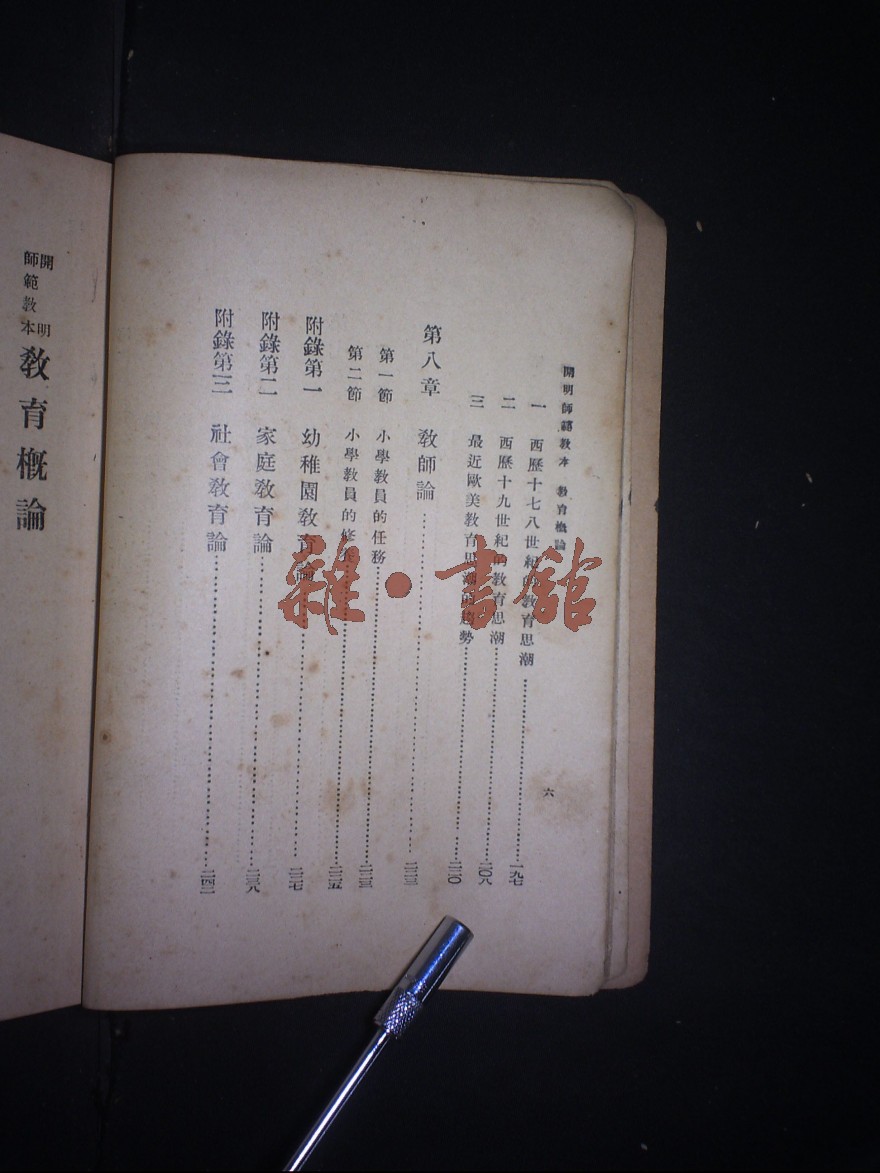 開明師範教本 教育概論
六
一 西歷十七八世紀的教育思潮……一九七
二 西歷十九世紀的教育思潮……二〇八
三 最近歐美教育思潮的趨勢……二二〇
第八章 教師論……二二三
第一節 小學教員的任務……二二三
第二節 小學教員的修養……二二五
附錄第一 幼稚園教育論……
附錄第二 家庭教育論……二三八
附錄第三 社會教育論……二四二
開明
師範教本
教育概論
雜·書館